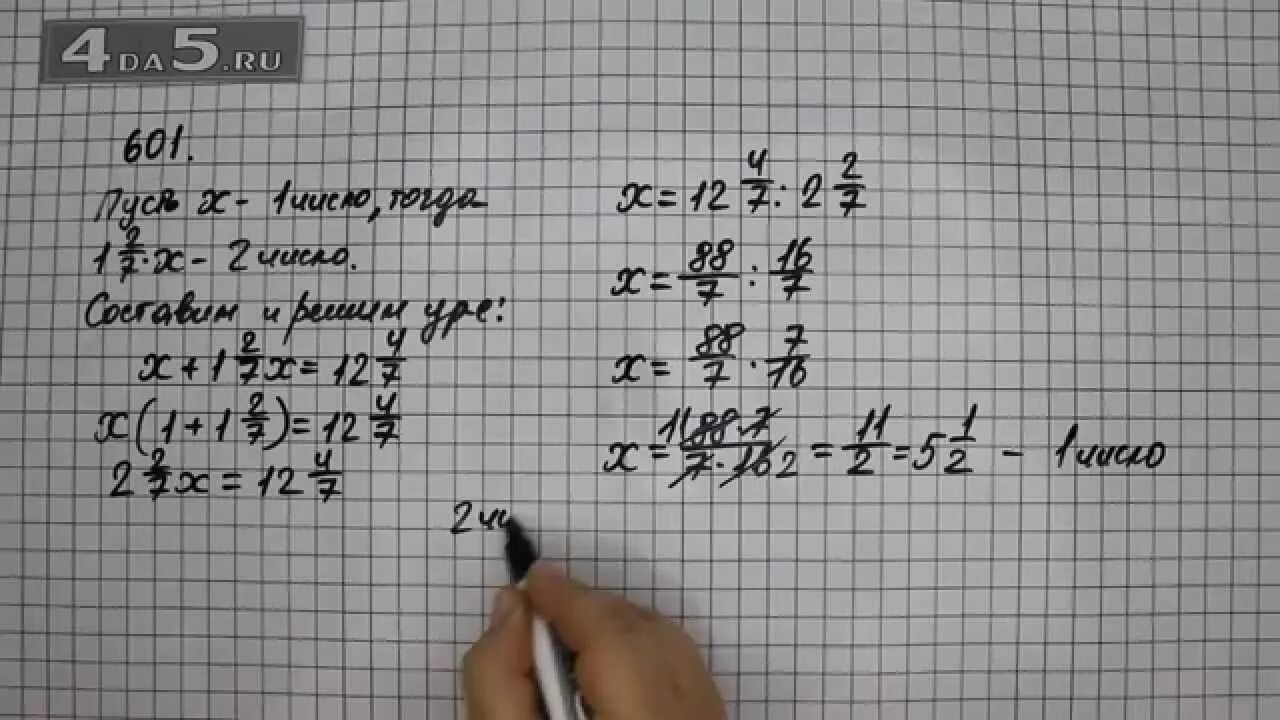 4DA5.RU
601.
Пусть x - 1 число, тогда
1 2/7 · x - 2 число.
Составим и решим ур-е:
x + 1 2/7 x = 12 4/7
x(1 + 1 2/7) = 12 4/7
2 2/7 x = 12 4/7
x = 12 4/7 : 2 2/7
x = 88/7 : 16/7
x = 88/7 · 7/16
x = 11 88·7/7·16 2 = 11/2 = 5 1/2 - 1 число
2 чи